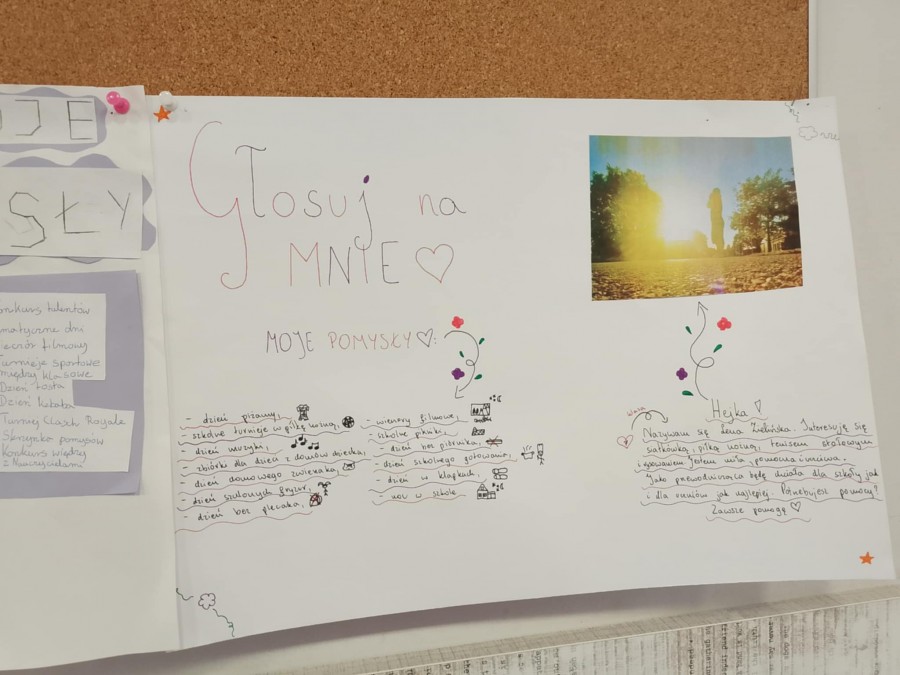 JE
SŁY
onkurs talentów
matyczne dni
ieczór filmowy
Turnieje sportowe
między klasowe
Dzień tosta
Dzień kebaba
Turniej Clash Royale
Skrzynka pomysłów
Konkurs między
z Nauczycielami
Głosuj na
MNIE ♡
MOJE POMYSŁY ♡:
- dzień piżamy,
- szkolne turnieje w piłkę nożną,
- dzień muzyki,
- zbiórki dla dzieci z domów dziecka,
- dzień domowego zwierzaka,
- dzień szalonych fryzur,
- dzień bez plecaka,
- wieczory filmowe,
- szkolne pikniki,
- dzień bez piórnika,
- dzień szkolnego gotowania,
- dzień w klapkach,
- noc w szkole.
Wasza
Hejka ♡
Nazywam się Lena Zielińska. Interesuję się
siatkówką, piłką nożną, tenisem stołowym
i śpiewaniem. Jestem miła, pomocna i uczciwa.
Jako przewodnicząca będę działa dla szkoły jak
i dla uczniów jak najlepiej. Potrzebujesz pomocy?
Zawsze pomogę ♡